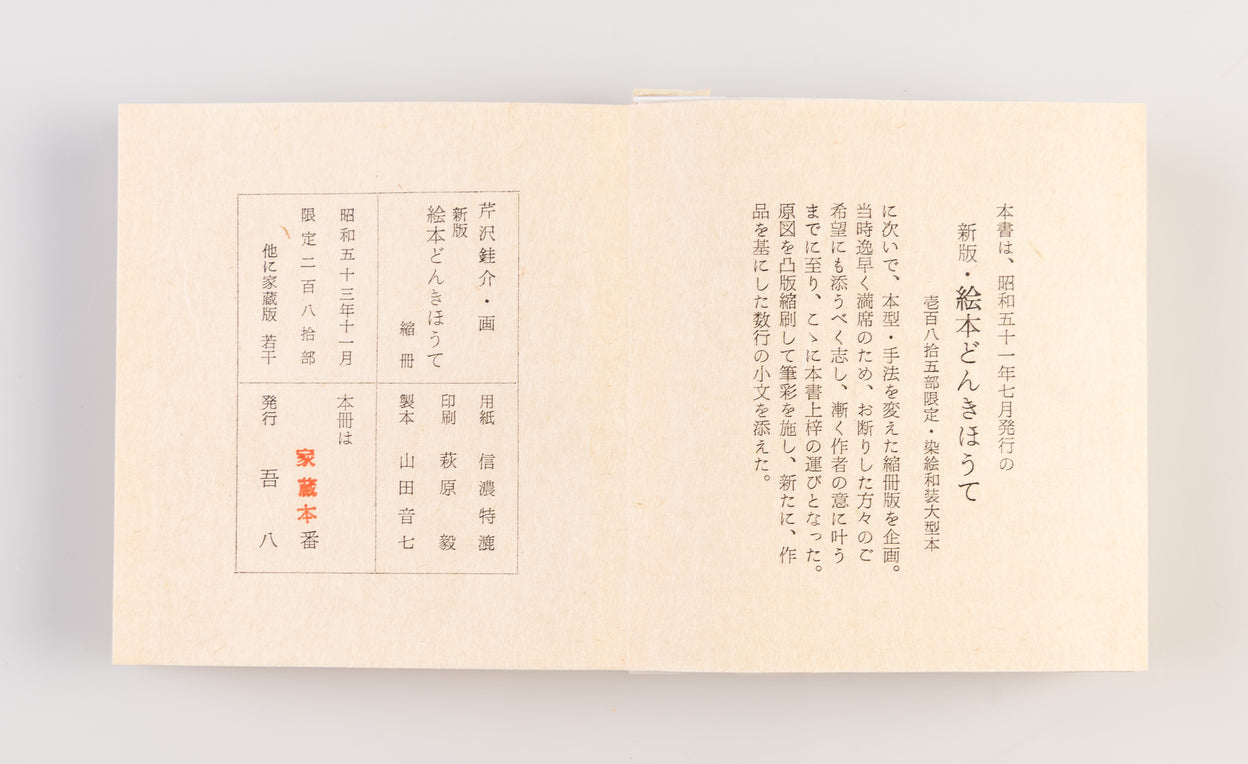 本書は、昭和五十一年七月発行の
新版・絵本どんきほうて
壱百八拾五部限定・染絵和装大型本
に次いで、本型・手法を変えた縮冊版を企画。
当時逸早く満席のため、お断りした方々のご
希望にも添うべく志し、漸く作者の意に叶う
までに至り、こゝに本書上梓の運びとなった。
原図を凸版縮刷して筆彩を施し、新たに、作
品を基にした数行の小文を添えた。
芹沢銈介・画
新版
絵本どんきほうて
縮冊
昭和五十三年十一月
限定二百八拾部
他に家蔵版 若干
用紙 信濃特漉
印刷 萩原毅
製本 山田音七
本冊は
家蔵本番
発行 吾八